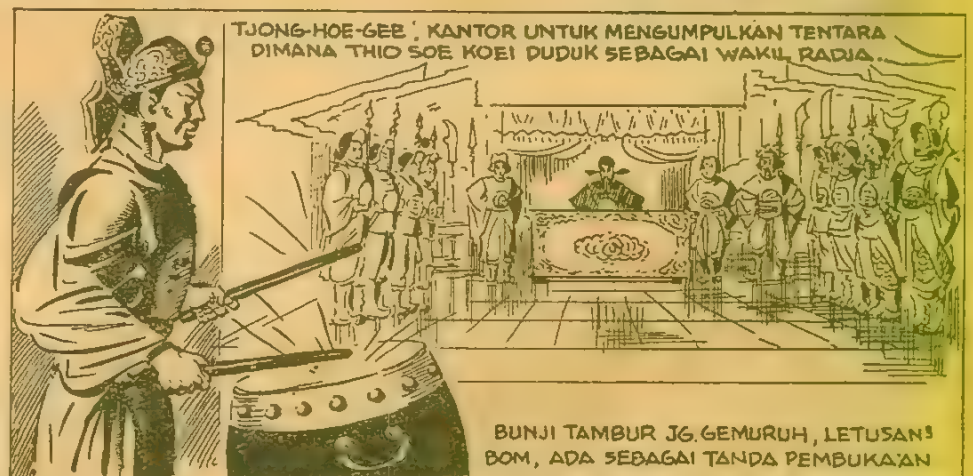 'TJONG-HOE-GEE', KANTOR UNTUK MENGUMPULKAN TENTARA
DIMANA THIO SOE KOEI DUDUK SEBAGAI WAKIL RADJA.
BUNJI TAMBUR JG. GEMURUH, LETUSANS
BOM, ADA SEBAGAI TANDA PEMBUKA'AN